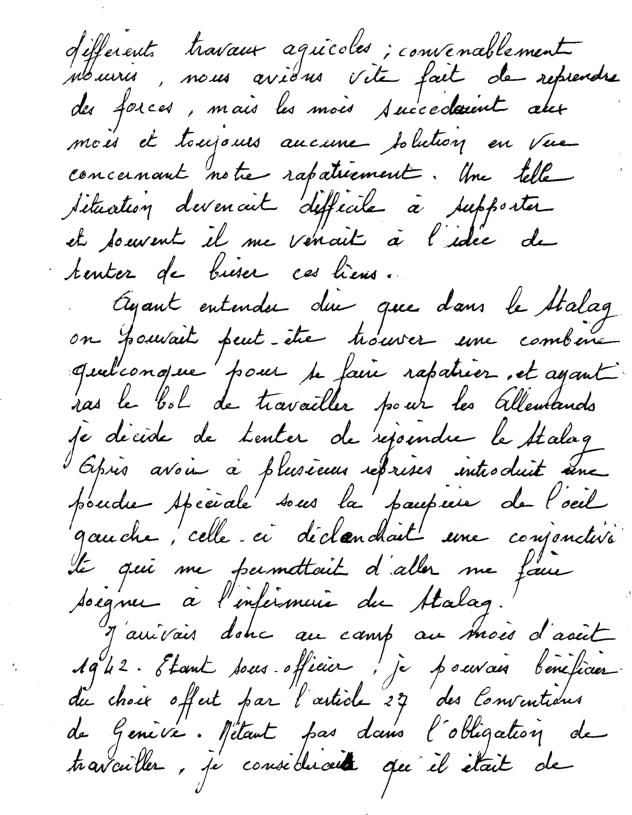 différents travaux agricoles ; convenablement
nourris, nous avions vite fait de reprendre
des forces, mais les mois succédaient aux
mois et toujours aucune solution en vue
concernant notre rapatriement. Une telle
situation devenait difficile à supporter
et souvent il me venait à l'idée de
tenter de briser ces liens.
Ayant entendu dire que dans le Stalag
on pouvait peut-être trouver une combine
quelconque pour se faire rapatrier, et ayant
ras le bol de travailler pour les Allemands
je décide de tenter de rejoindre le Stalag
Après avoir à plusieurs reprises introduit une
poudre spéciale sous la paupière de l'oeil
gauche, celle-ci déclanchait une conjonctivi
te qui me permettait d'aller me faire
soigner à l'infirmerie du Stalag.
J'arrivais donc au camp au mois d'août
1942. Etant sous-officier, je pouvais bénéficier
du choix offert par l'article 27 des Conventions
de Genève. N'étant pas dans l'obligation de
travailler, je considérais qu'il était de